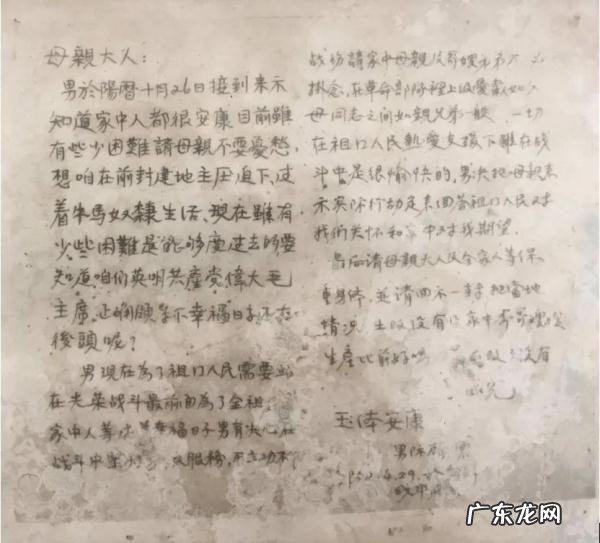 母親大人：
男於陽曆十月26日接到来示
知道家中人都很安康目前雖
有些少困難請母親不要憂愁，
想咱在前封建地主压迫下、过
着牛馬奴隸生活、現在雖有
少些困難是能够度过去的要
知道咱们英明共產党偉大毛
主席、正确領导下幸福日子还在
後頭呢？
男現在為了祖国人民需要站
在光荣战斗最前面為了全祖
家中人等过幸福日子男有决心在
战斗中服務，不立功不
战场請家中母親及哥嫂弟
掛念、在革命部隊裡上级愛戴如父
母同志之间如親兄弟一般 一切
在祖国人民熱愛支援下雖在战
斗中是很愉快的，男决把母親来
示实际行动是来回答祖国人民对
我們关怀和家中对我期望。
最后请母親大人及全家人等保
重身体，並请回示一封把當地
情况 土改没有 家中哥哥嫂嫂
生產比前好吗 没有
玉体安康
男
1952.4.29.
广东龙网